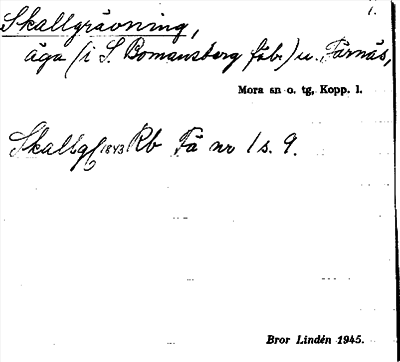 1.
Skallgrävning,
äga (i S. Bomansberg fäb.) u. Färnäs,
Mora sn o. tg, Kopp. l.
Skallg 1843 Rb Fä nr 1 s. 9.
Bror Lindén 1945.